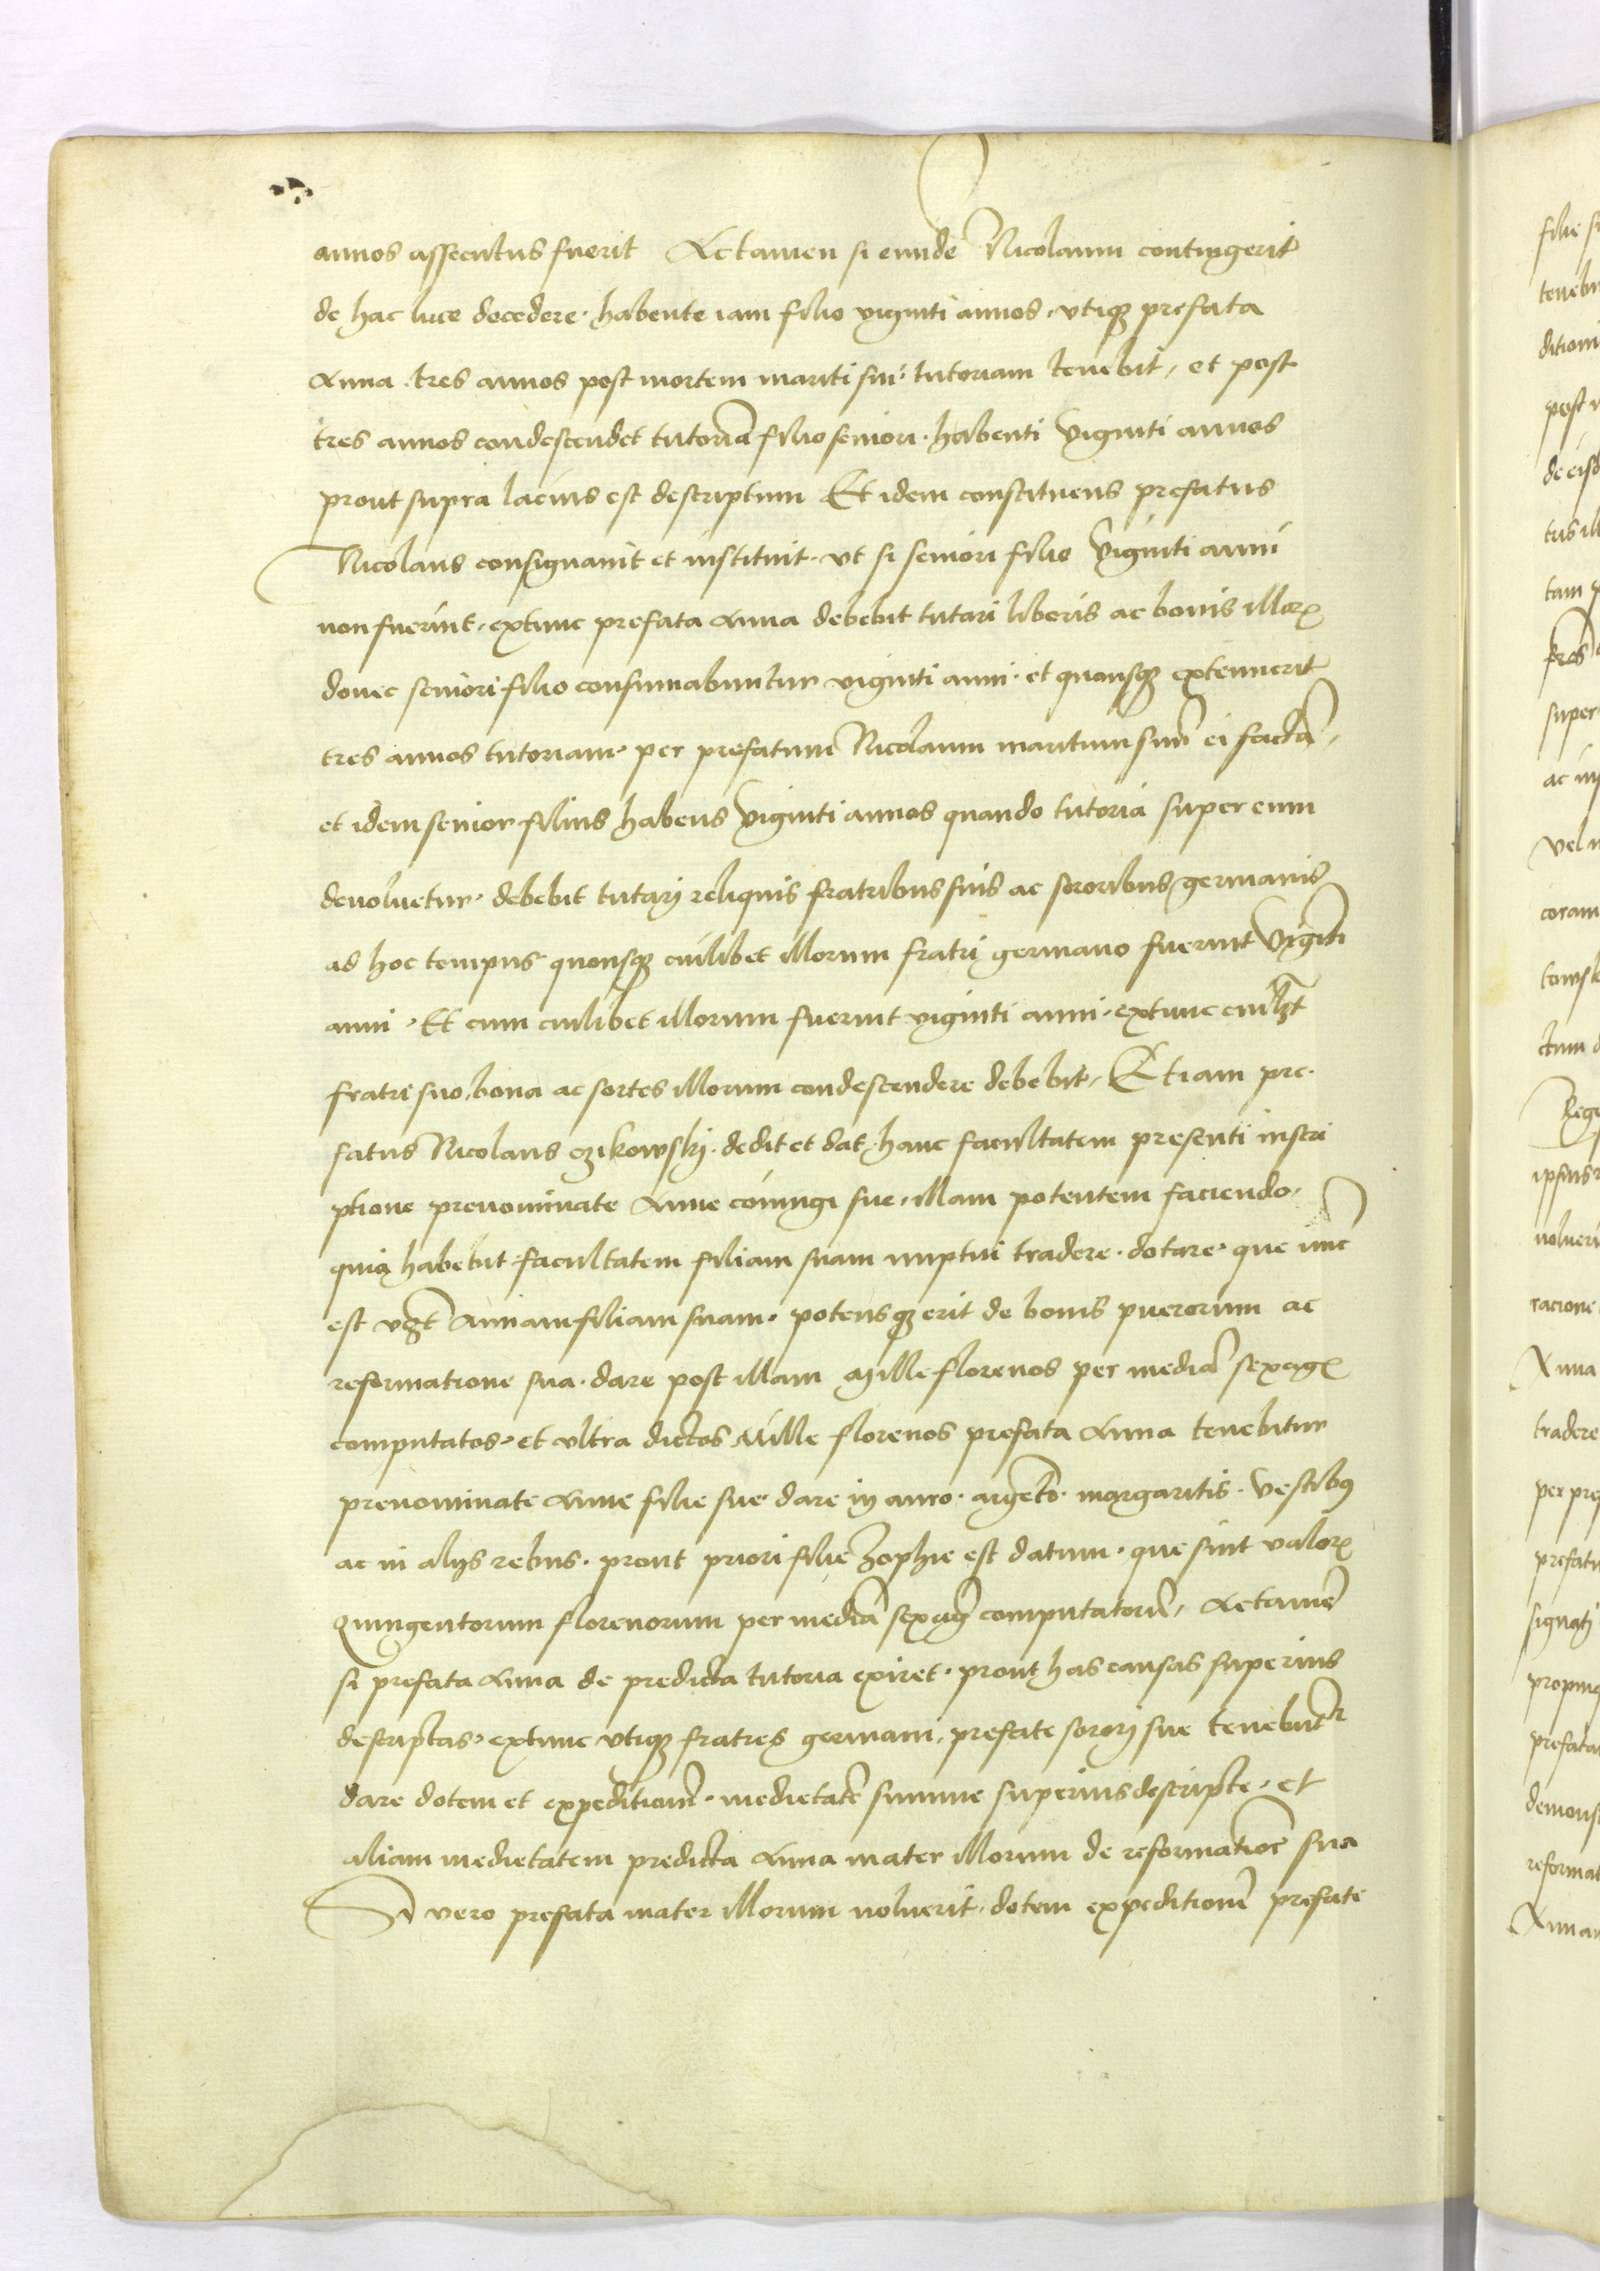 annos assecutus fuerit Actamen si eunde Nicolaum contingerit
de hac luce decedere · habente iam filio viginti annos, vtiqz prefata
Anna · tres annos post mortem mariti sui · tutoriam tenebit, et post
tres annos condescendet tutoriā filio seniori · habenti viginti annos
prout supra lacius est descriptum Et idem constituens prefatus
Nicolaus consignauit et instituit · vt si seniori filio viginti anni
non fuerint, extunc prefata Anna debebit tutari liberis ac bonis illorꝝ
donec seniori filio consumabuntur viginti anni · et quousqz extenuerit
tres annos tutoriam · per prefatum Nicolaum maritum suū ei factā,
et idem senior filius habens viginti annos quando tutoria super eum
deuoluetur · debebit tutari reliquis fratribus suis ac sororibus germanis
ad hoc tempus quousqz cuilibet illorum fratri germano fuerint vigīti
anni · Et cum cuilibet illorum fuerint viginti anni, extunc cuilꝫt
fratri suo, bona ac sortes illorum condescendere debebit, Etiam pre-
fatus Nicolaus czikowski · dedit et dat · hanc facultatem presenti inscri
ptione prenominate Anne coniugi sue, illam potentem faciendo,
quia habebit facultatem filiam suam nuptui tradere · dotare · que nūc
est vꝫt Annam filiam suam · potensqz erit de bonis puerorum ac
reformatione sua · dare post illam Mille florenos per mediā sexagꝫ
computatos · et vltra dictos Mille florenos prefata Anna tenebitur
prenominate Anne filie sue dare in auro · argēto · margaritis · vestibꝰ
ac in alijs rebus · prout priori filie Zophie est datum · que sint valorꝫ
Quingentorum florenorum per mediā sexagꝫ computatorū, Actamē
si prefata Anna de predicta tutoria exiret · prout has causas superius
descriptas · extunc vtiqz fratres germani, prefate sorori sue tenebūtr
dare dotem et expeditionē · medietatē summe superius descripte, et
aliam medietatem predicta Anna mater illorum de reformatioē sua
Si vero prefata mater illorum noluerit, dotem expeditionē prefate